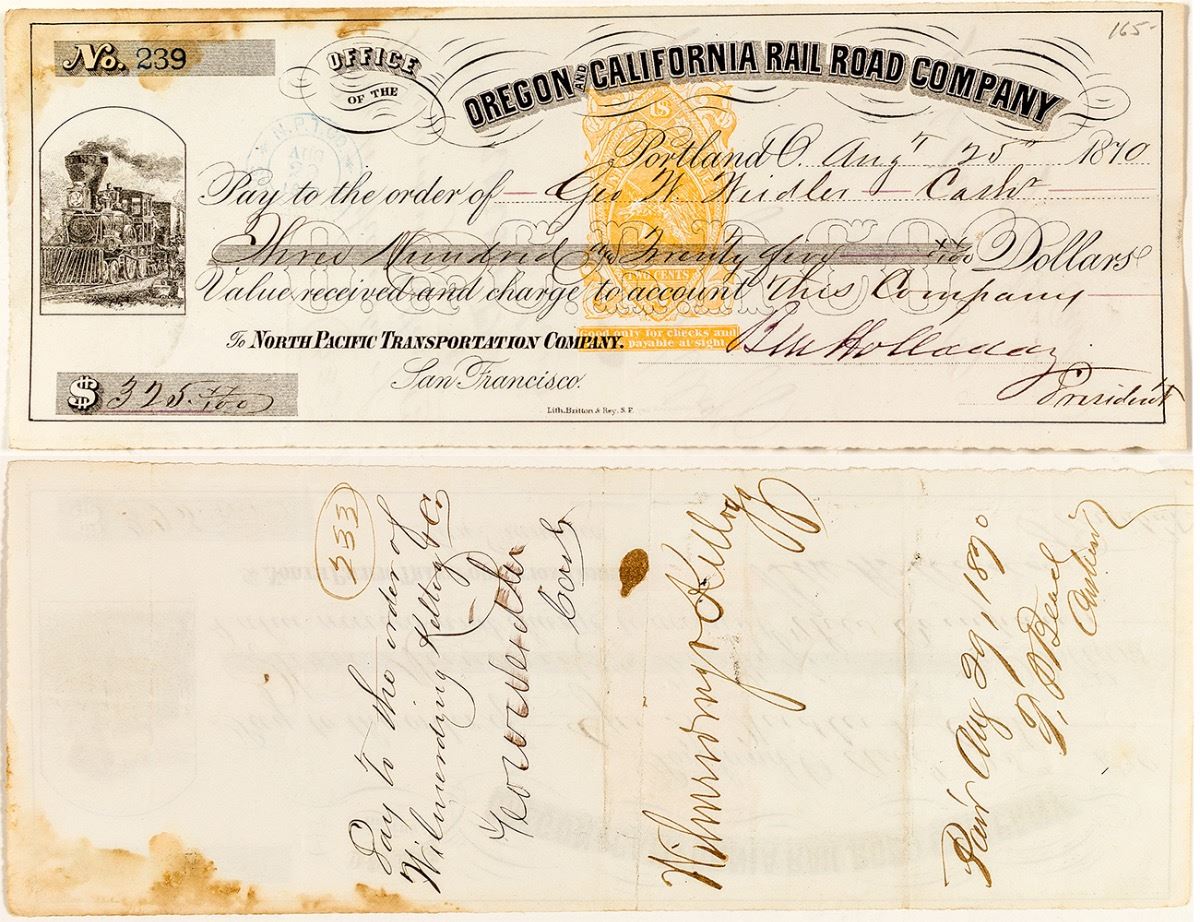 165-
No. 239
OFFICE
OF THE
OREGON AND CALIFORNIA RAIL ROAD COMPANY
Portland O. Augt 25th 1870
Pay to the order of Geo W. Weidler Cashr
Three Hundred & Twenty five xx/100 Dollars
Value received and charge to account This Company
To NORTH PACIFIC TRANSPORTATION COMPANY.
San Francisco.
Ben Holladay
President
$ 325 xx/100
Lith. Britton & Rey, S. F.
N.P.T.CO
AUG
TWO CENTS
Good only for checks and
payable at sight.
333
Pay to the order of
Wilmerding Kellogg & Co
Geo W Weidler
Cash
Wilmerding & Kellogg
Paid Aug 29, 1870